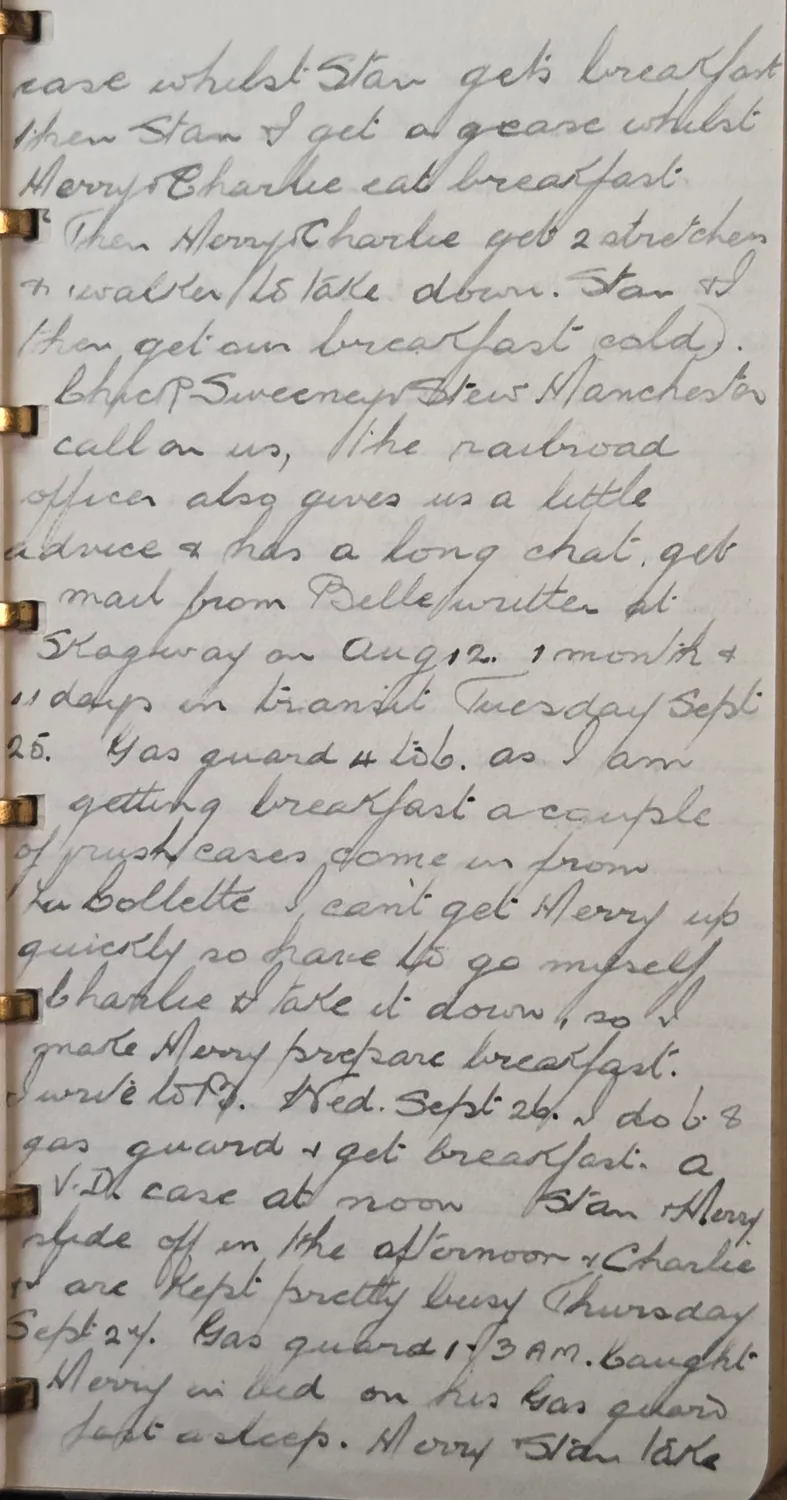 case whilst Stan gets breakfast
then Stan & I get a gcase whilst
Merry & Charlie eat breakfast.
Then Merry & Charlie get 2 stretchers
& walker to take down. Stan & I
then get our breakfast cold).
Chick Sweeney & Stew Manchester
call on us, the railroad
officer also gives us a little
advice & has a long chat. get
mail from Belle written at
Skagway on Aug 12. 1 month &
11 days in transit Tuesday Sept
25. Gas guard 4 to 6. as I am
getting breakfast a couple
of rush cases come in from
Lu Collette I can't get Merry up
quickly so have to go myself
Charlie & I take it down, so I
make Merry prepare breakfast.
I write to P. Wed. Sept 26. I do 6-8
gas guard & get breakfast. a
V.D. case at noon Stan & Merry
slide off in the afternoon & Charlie
& I are kept pretty busy Thursday
Sept 27. Gas guard 1-3 AM. Caught
Merry in bed on his Gas guard
fast asleep. Merry & Stan take